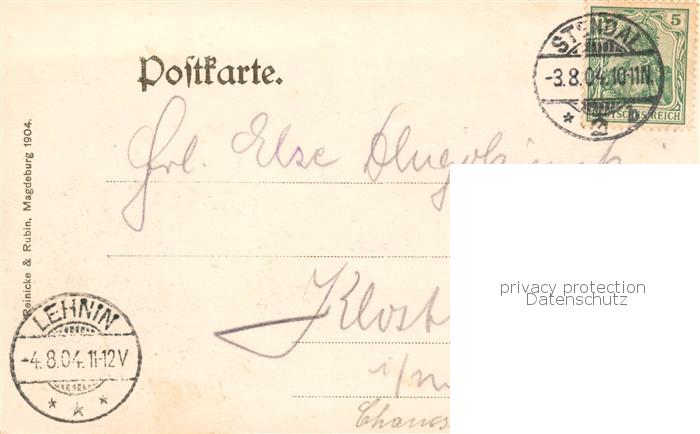 Postkarte.
STENDAL
-3.8.04.10-11N.
* 2 b
5
DEUTSCHES REICH
Frl. Else
Klost
i/m
Reinicke & Rubin, Magdeburg 1904.
LEHNIN
-4.8.04.11-12V
* * *
privacy protection
Datenschutz